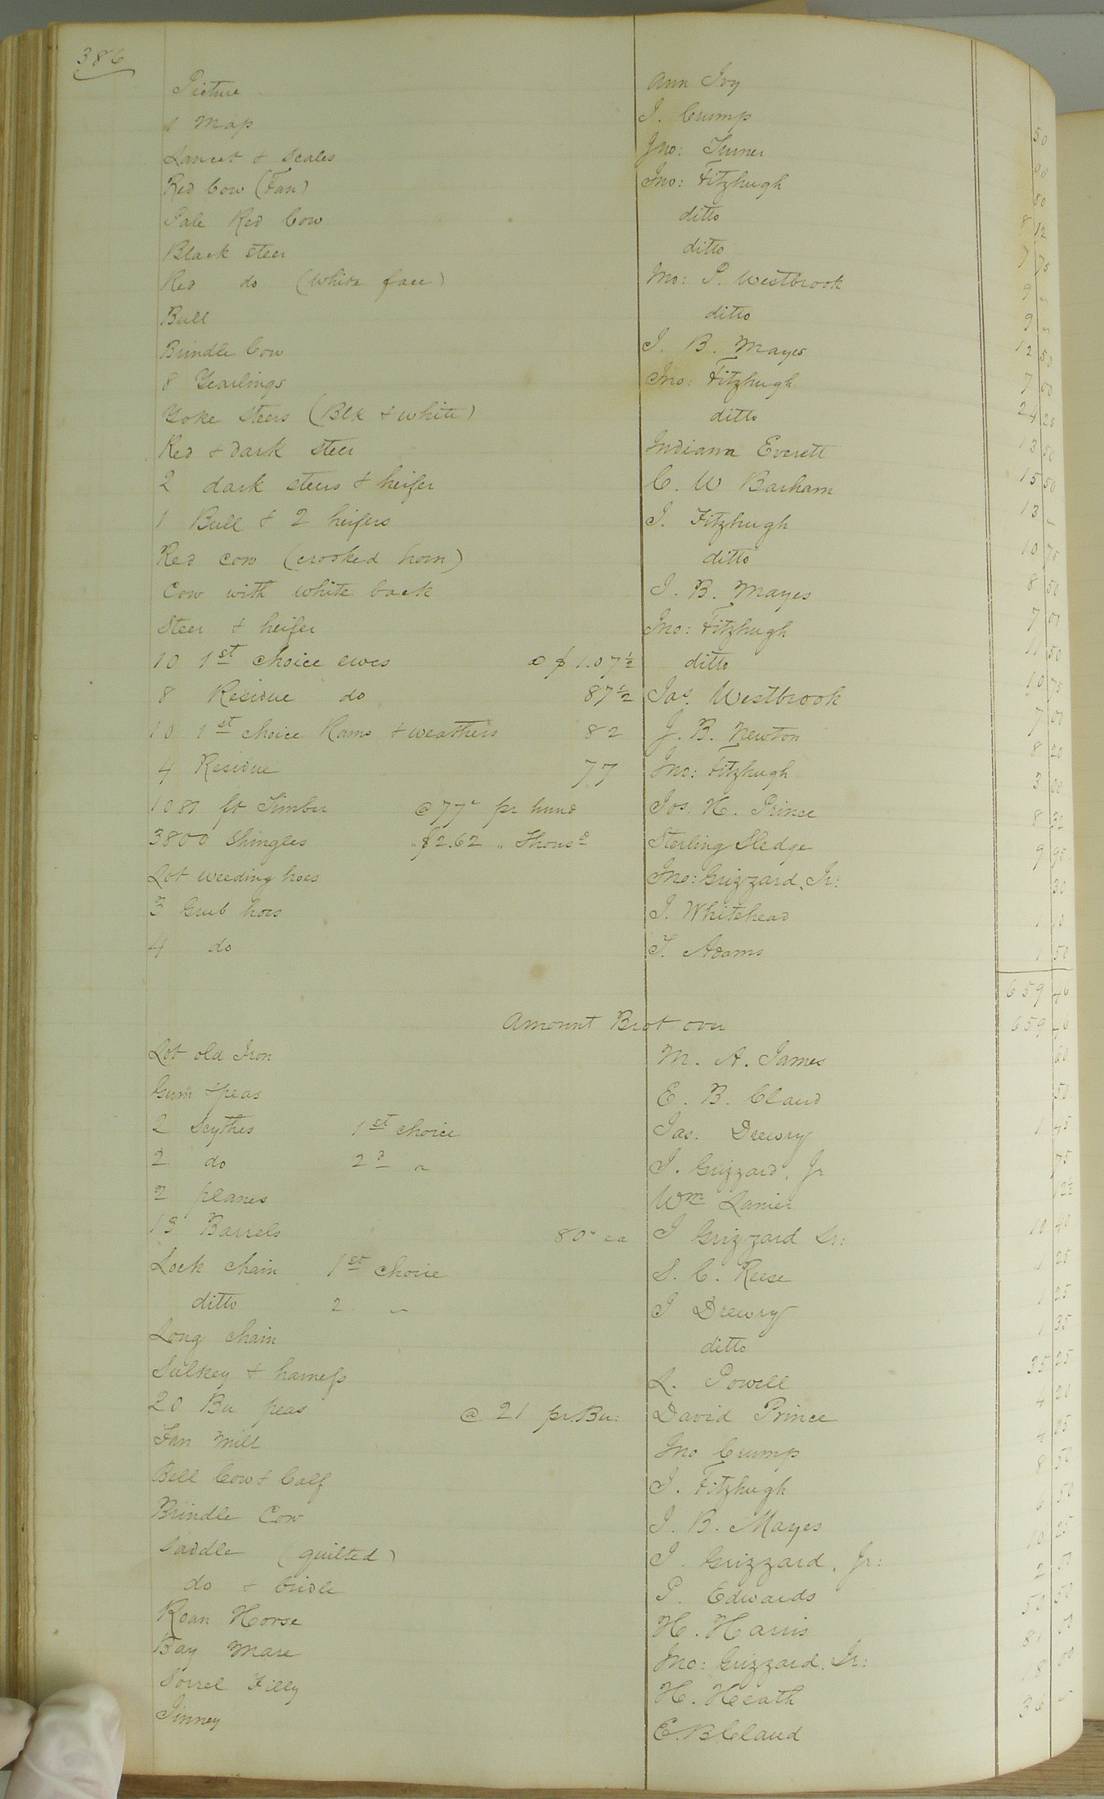 386
Picture Ann Ivy
1 Map J. Crump 50
Lancet & Scales Jno: Turner 00
Red Cow (Fan) Jno: Fitzhugh 50
Pale Red Cow ditto 8 12
Black steer ditto 7 75
Red do (white face) Jno: P. Westbrook 9 -
Bull ditto 9 -
Brindle Cow J. B. Mayes 12 50
8 Yearlings Jno: Fitzhugh 7 50
Yoke Steers (Blk & white) ditto 24 20
Red & dark Steer Indiana Everett 13 50
2 dark steers & heifer C. W Barham 15 50
1 Bull & 2 heifers J. Fitzhugh 13 -
Red cow (crooked horn) ditto 10 75
Cow with white back J. B. Mayes 8 50
Steer & heifer Jno: Fitzhugh 7 50
10 1st choice ewes @ $ 1.07½ ditto 11 50
8 Residue do 87½ Jas. Westbrook 10 75
10 1st choice Rams & weathers 82 J. B. Newton 7 00
4 Residue 77 Jno: Fitzhugh 8 20
1081 ft Timber @ 77c pr hund Jos. H. Prince 3 00
3800 Shingles " $2.62 " Thousd Sterling Sledge 8 32
Lot weeding hoes Jno: Grizzard, Jr: 9 95
3 Grub hoes J. Whitehead 30
4 do T. Adams 1 10
1 50
659 46
Amount Brot over 659 46
Lot old Iron M. A. James 60
Gum & peas E. B. Claud 50
2 Scythes 1st choice Jas. Drewry 1 75
2 do 2d " J. Grizzard, Jr 75
2 planes Wm Lanier 12½
13 Barrels 80c ea J Grizzard Sr: 10 40
Lock chain 1st choice S. C. Reese 1 25
ditto 2 " J Drewry 1 25
Long chain ditto 1 35
Sulkey & harness L. Powell 35 25
20 Bu peas @ 21 pr Bu: David Prince 4 20
Fan mill Jno Crump 05
Bell Cow & Calf J. Fitzhugh 8 50
Brindle Cow J. B. Mayes 6 50
Saddle (quilted) J. Grizzard, Jr: 10 25
do & bridle P. Edwards 2 50
Roan Horse H. Harris 50 50
Bay Mare Jno: Grizzard, Sr: 81
Sorrel Filly H. Heath 18 00
Jinney E. B. Claud 36 -